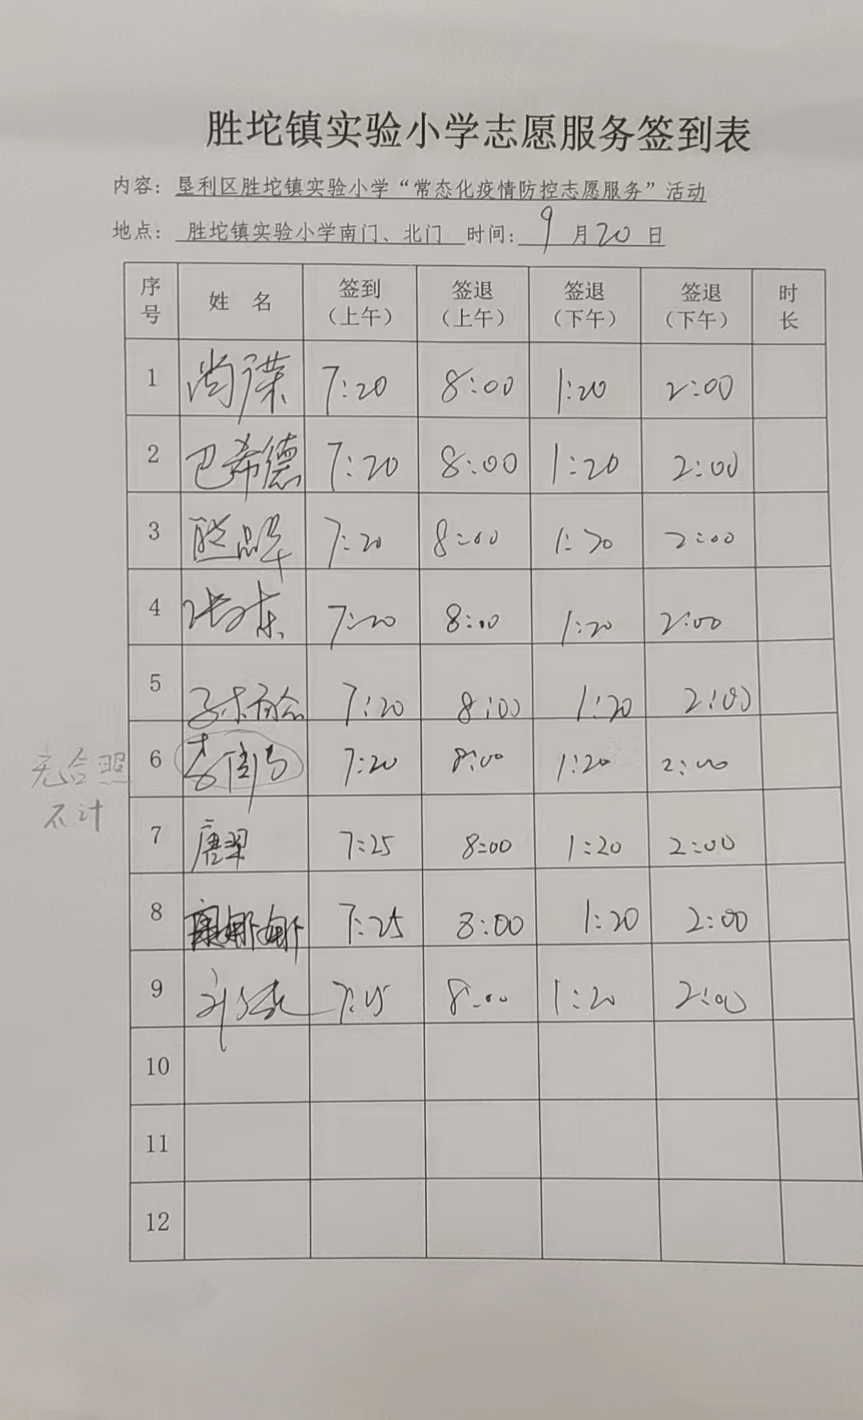 胜坨镇实验小学志愿服务签到表
内容：垦利区胜坨镇实验小学“常态化疫情防控志愿服务”活动
地点：胜坨镇实验小学南门、北门 时间：9月20日
序号 姓 名 签到（上午） 签退（上午） 签退（下午） 签退（下午） 时长
1 7:20 8:00 1:20 2:00
2 巴希德 7:20 8:00 1:20 2:00
3 7:20 8:00 1:20 2:00
4 7:20 8:00 1:20 2:00
5 7:20 8:00 1:20 2:00
无合照
不计
6 7:20 8:00 1:20 2:00
7 唐翠 7:25 8:00 1:20 2:00
8 康娜娜 7:25 8:00 1:20 2:00
9 8:00 1:20 2:00
10
11
12